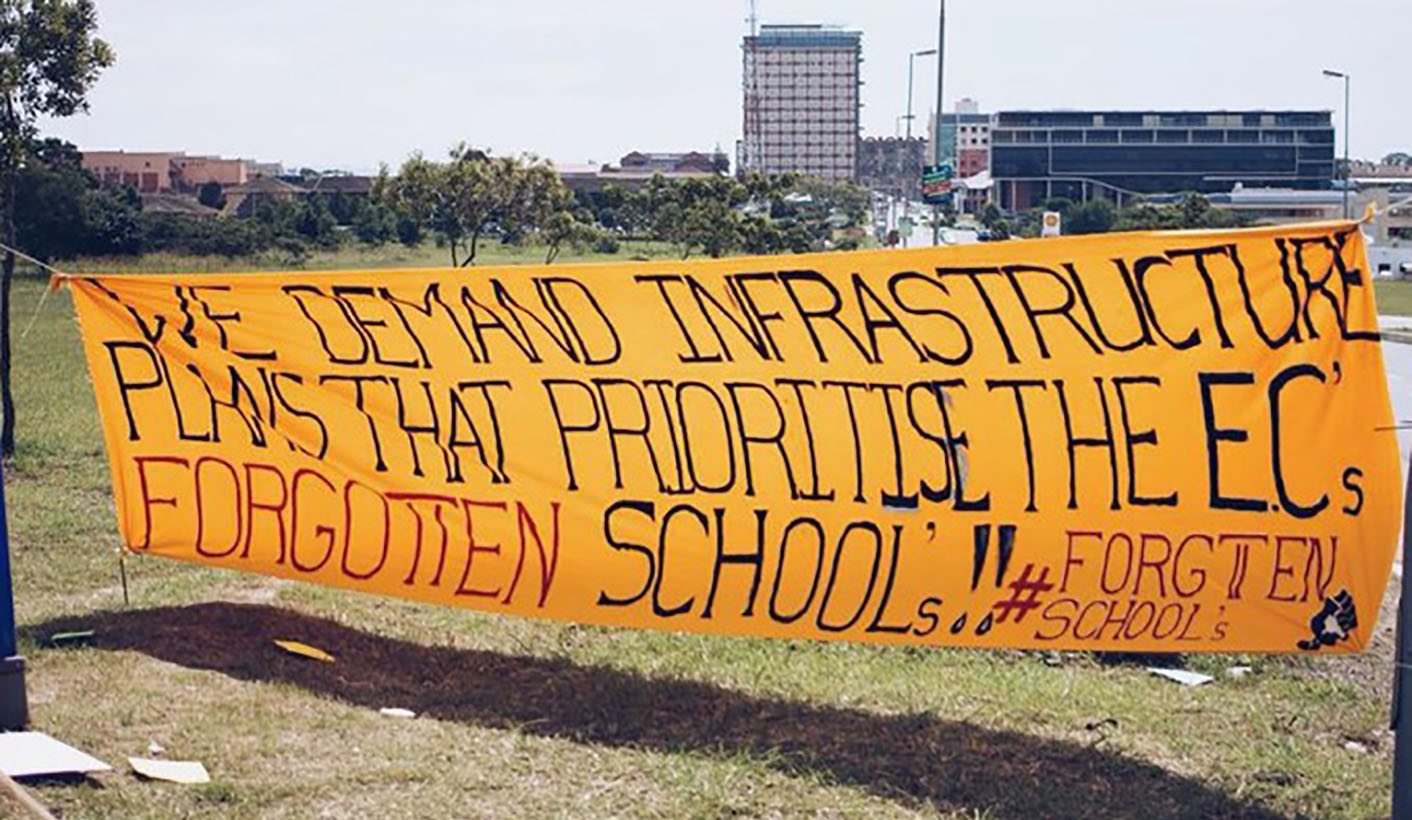 WE DEMAND INFRASTRUCTURE
PLANS THAT PRIORITISE THE E.C's
FORGOTTEN SCHOOL's!!
#FORGTTEN
SCHOOL's